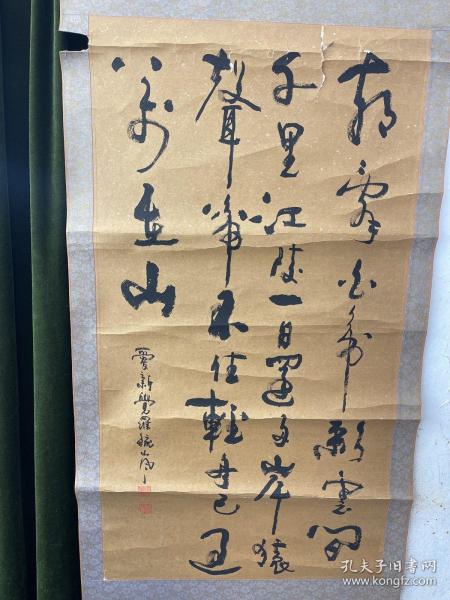 朝辭白帝彩雲間
千里江陵一日還兩岸猿
聲啼不住輕舟已過
萬重山
愛新覺羅毓
孔夫子旧书网
www.kongfz.com